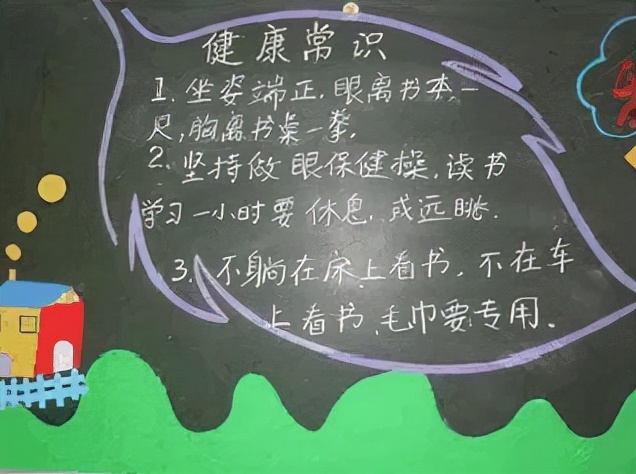 健康常识
1. 坐姿端正，眼离书本一
尺，胸离书桌一拳。
2. 坚持做眼保健操，读书
学习一小时要休息，或远眺。
3. 不躺在床上看书，不在车
上看书，毛巾要专用。